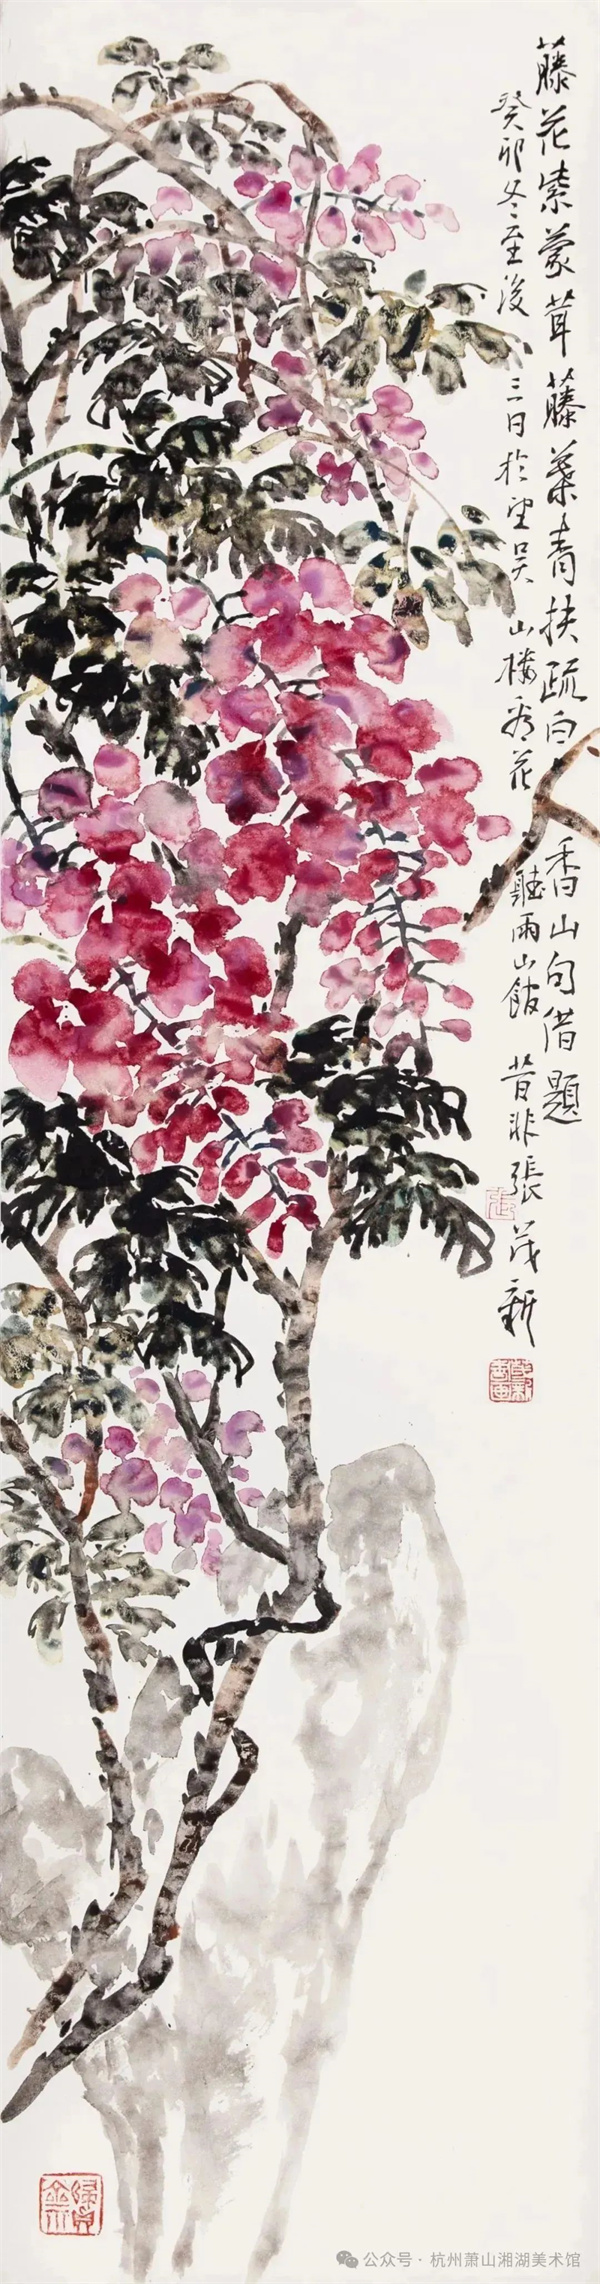 藤花紫蒙茸藤葉青扶疏白香山句借題
癸卯冬至後三日於望吴山樓看花聽雨山館昔非張茂新
公众号·杭州萧山湘湖美术馆